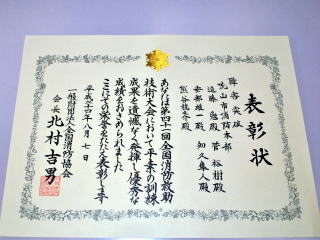 表彰状
障害突破
山市消防本部
遠藤勉殿 菅裕樹殿
安部雄一殿 知久隼人殿
熊谷龍 殿
あなたは第四十一回全国消防救助
技術大会において平素の訓練
成果を遺憾なく発揮し優秀な
成績をおさめられました
ここにその栄誉をたたえ表彰します
平成二十四年八月七日
一般財団法人全国消防協会
会長 北村吉男